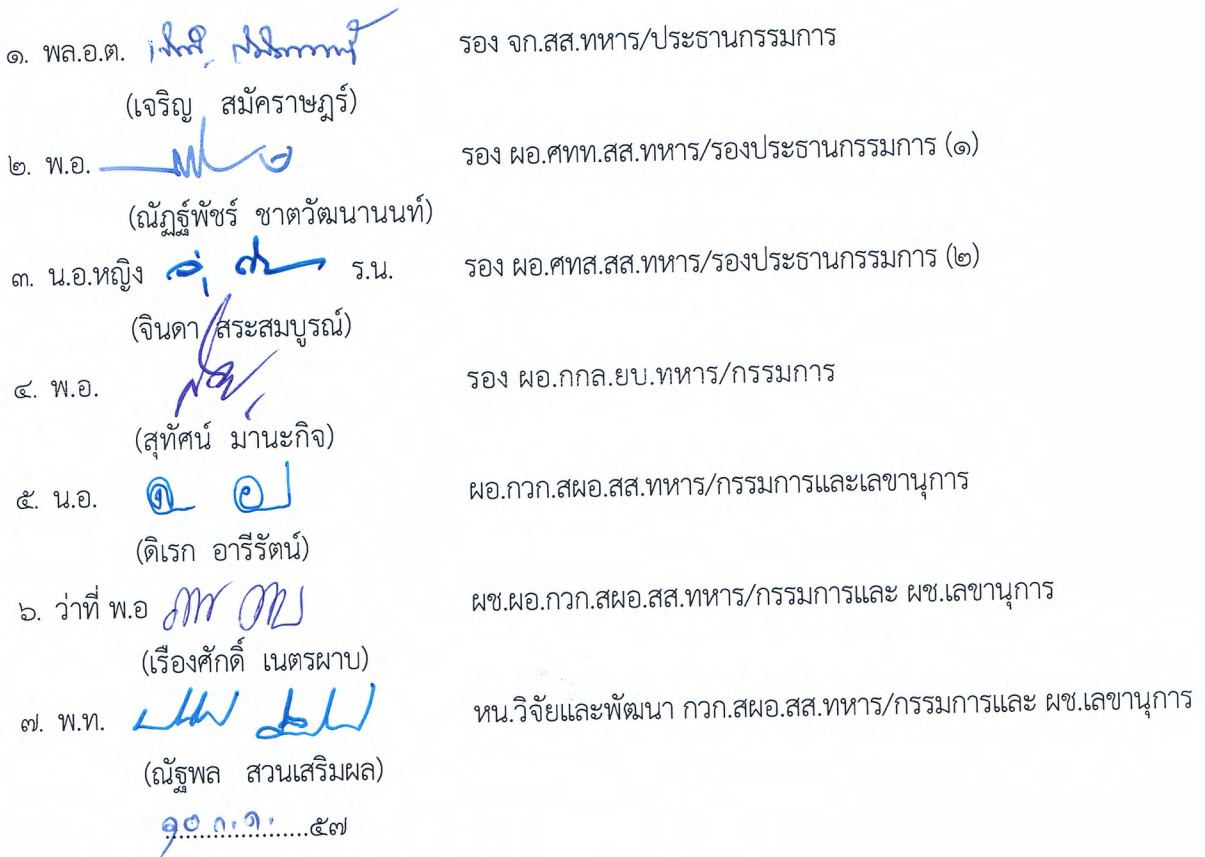 ๑. พล.อ.ต. รอง จก.สส.ทหาร/ประธานกรรมการ
(เจริญ สมัคราษฎร์)
๒. พ.อ. รอง ผอ.ศทท.สส.ทหาร/รองประธานกรรมการ (๑)
(ณัฏฐ์พัชร์ ชาตวัฒนานนท์)
๓. น.อ.หญิง ร.น. รอง ผอ.ศทส.สส.ทหาร/รองประธานกรรมการ (๒)
(จินดา สระสมบูรณ์)
๔. พ.อ. รอง ผอ.กกล.ยบ.ทหาร/กรรมการ
(สุทัศน์ มานะกิจ)
๕. น.อ. ผอ.กวก.สผอ.สส.ทหาร/กรรมการและเลขานุการ
(ดิเรก อารีรัตน์)
๖. ว่าที่ พ.อ ผช.ผอ.กวก.สผอ.สส.ทหาร/กรรมการและ ผช.เลขานุการ
(เรืองศักดิ์ เนตรผาบ)
๗. พ.ท. หน.วิจัยและพัฒนา กวก.สผอ.สส.ทหาร/กรรมการและ ผช.เลขานุการ
(ณัฐพล สวนเสริมผล)
๑๐ ก.ค. ๕๗